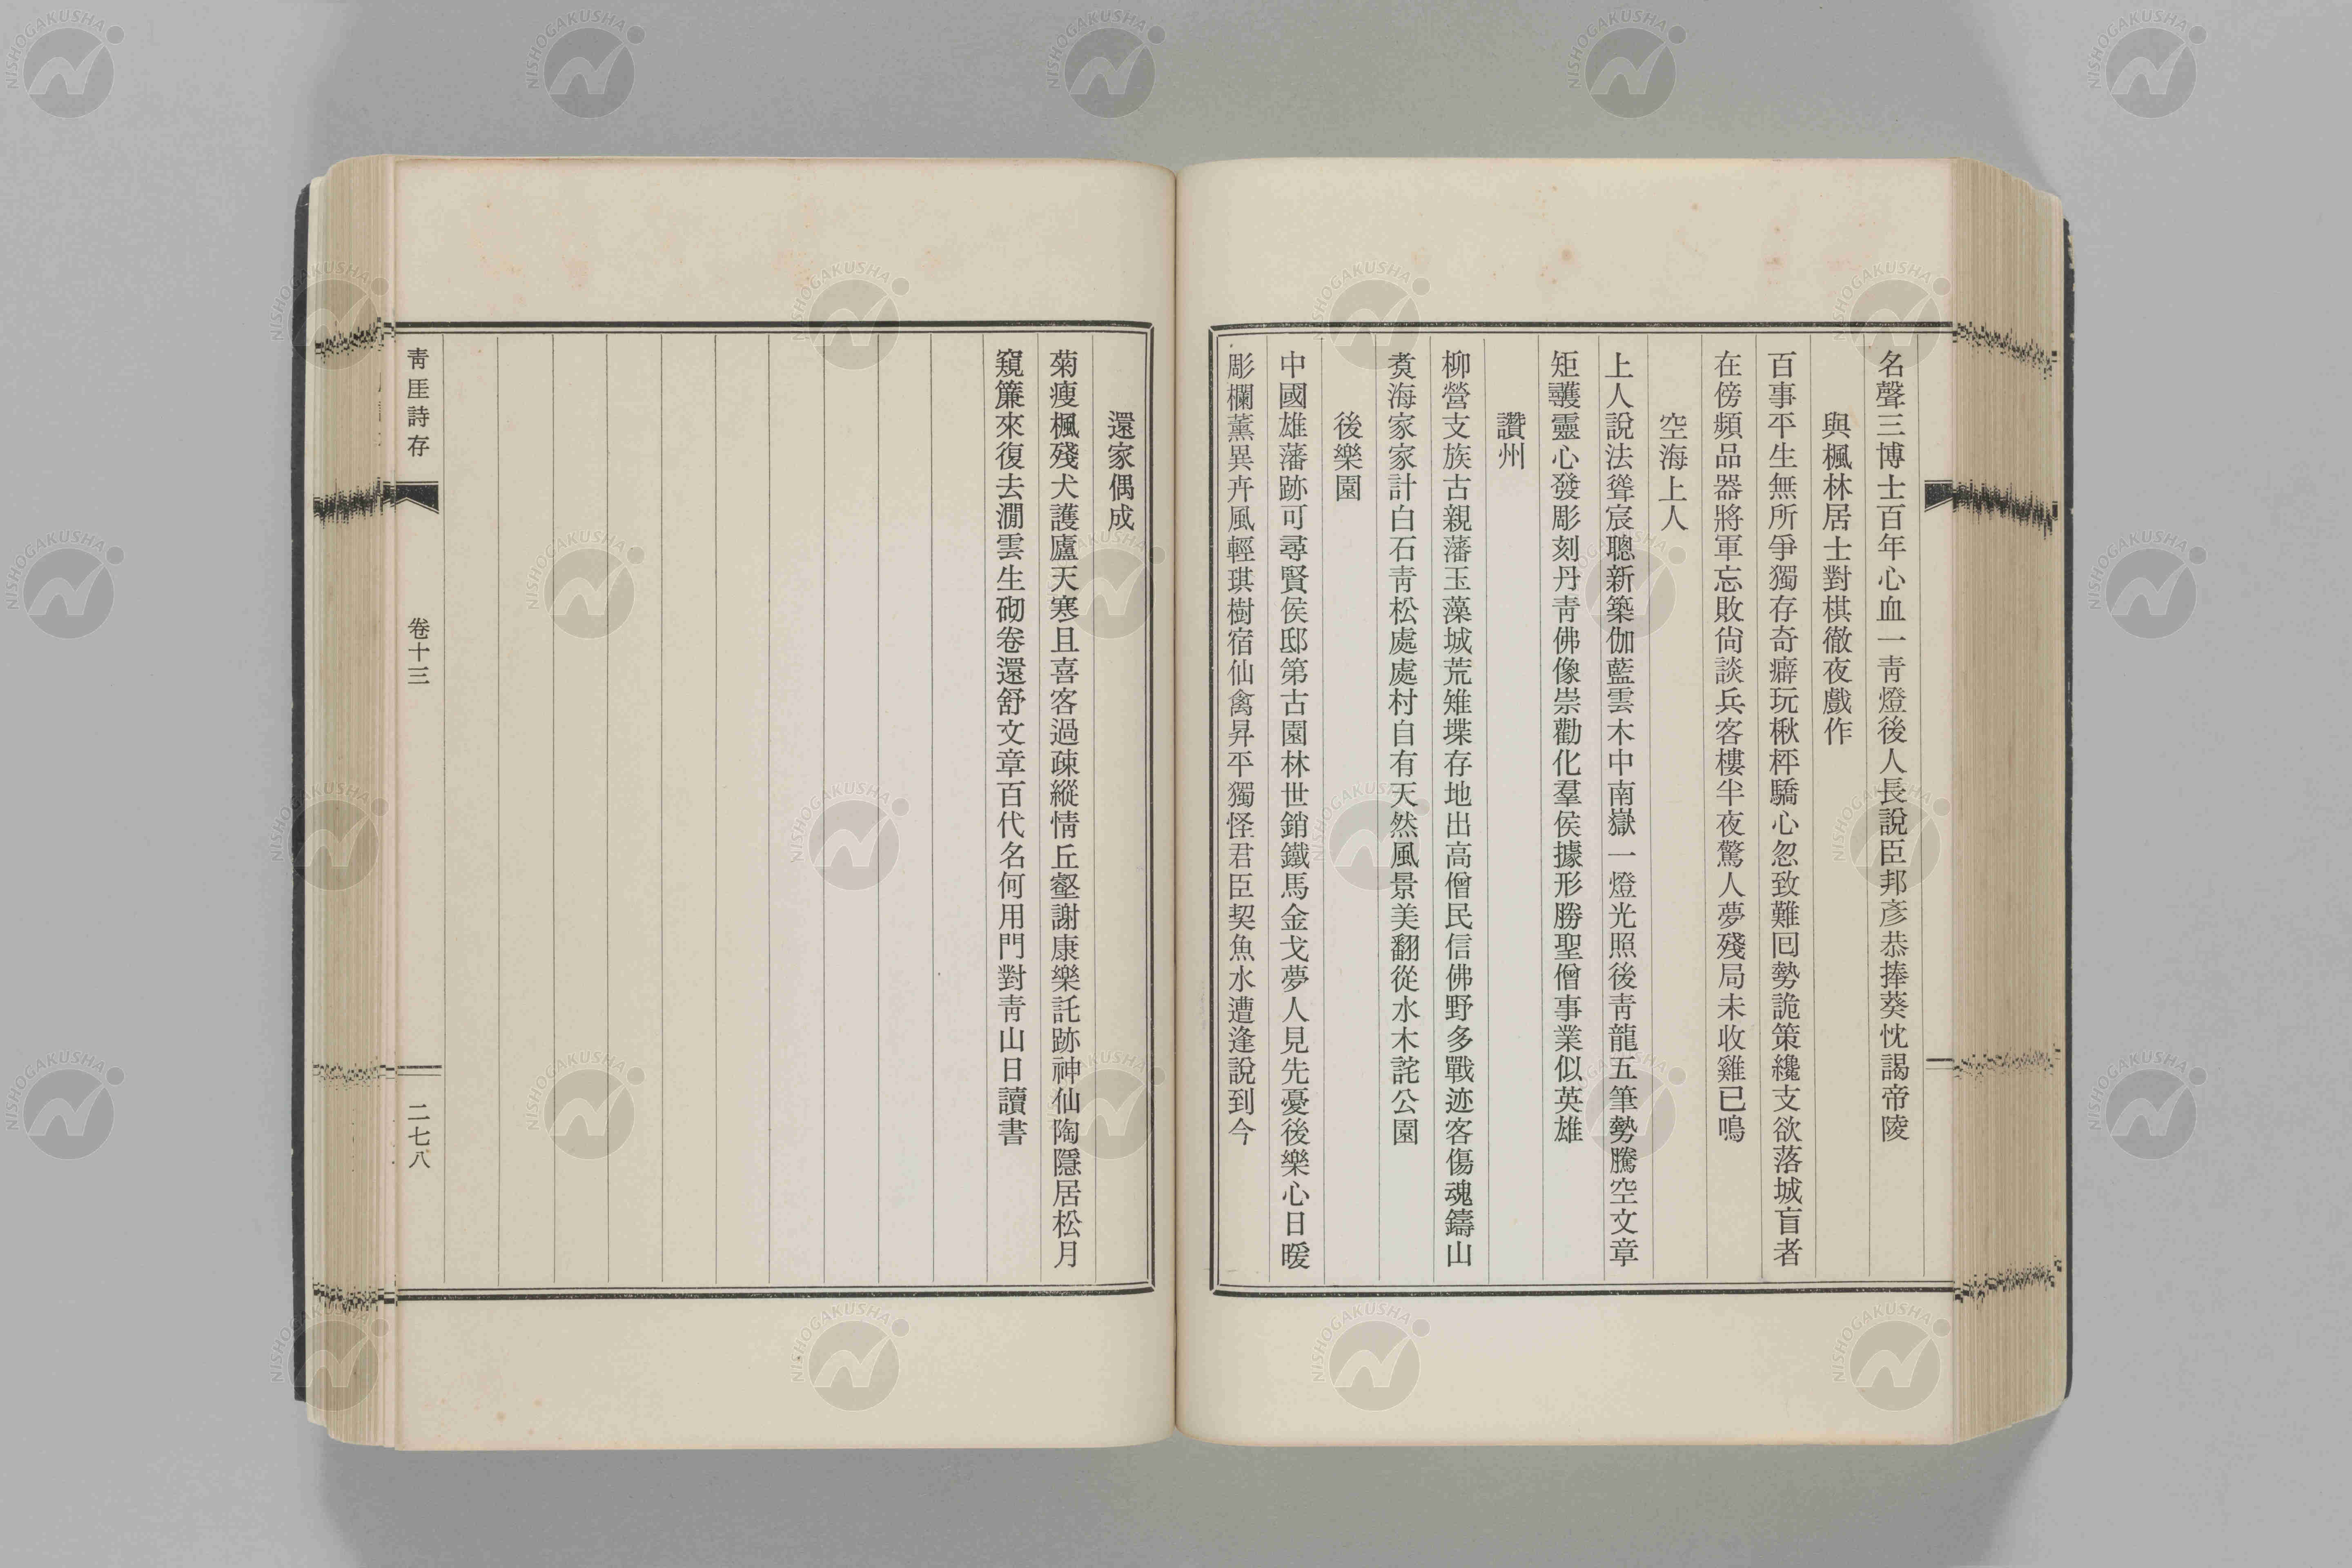 名聲三博士百年心血一靑燈後人長說臣邦彥恭捧葵忱謁帝陵
與楓林居士對棋徹夜戲作
百事平生無所爭獨存奇癖玩楸枰驕心忽致難囘勢詭策纔支欲落城盲者
在傍頻品器將軍忘敗尙談兵客樓半夜驚人夢殘局未收雞已鳴
空海上人
上人說法聳宸聰新築伽藍雲木中南嶽一燈光照後靑龍五筆勢騰空文章
矩矱靈心發彫刻丹靑佛像崇勸化羣侯據形勝聖僧事業似英雄
讚州
柳營支族古親藩玉藻城荒雉堞存地出高僧民信佛野多戰迹客傷魂鑄山
煑海家家計白石靑松處處村自有天然風景美翻從水木詫公園
後樂園
中國雄藩跡可尋賢侯邸第古園林世銷鐵馬金戈夢人見先憂後樂心日暖
彫欄薰異卉風輕琪樹宿仙禽昇平獨怪君臣契魚水遭逢說到今
還家偶成
菊瘦楓殘犬護廬天寒且喜客過疎縱情丘壑謝康樂託跡神仙陶隱居松月
窺簾來復去澗雲生砌卷還舒文章百代名何用門對靑山日讀書
靑厓詩存
卷十三
二七八
NISHOGAKUSHA